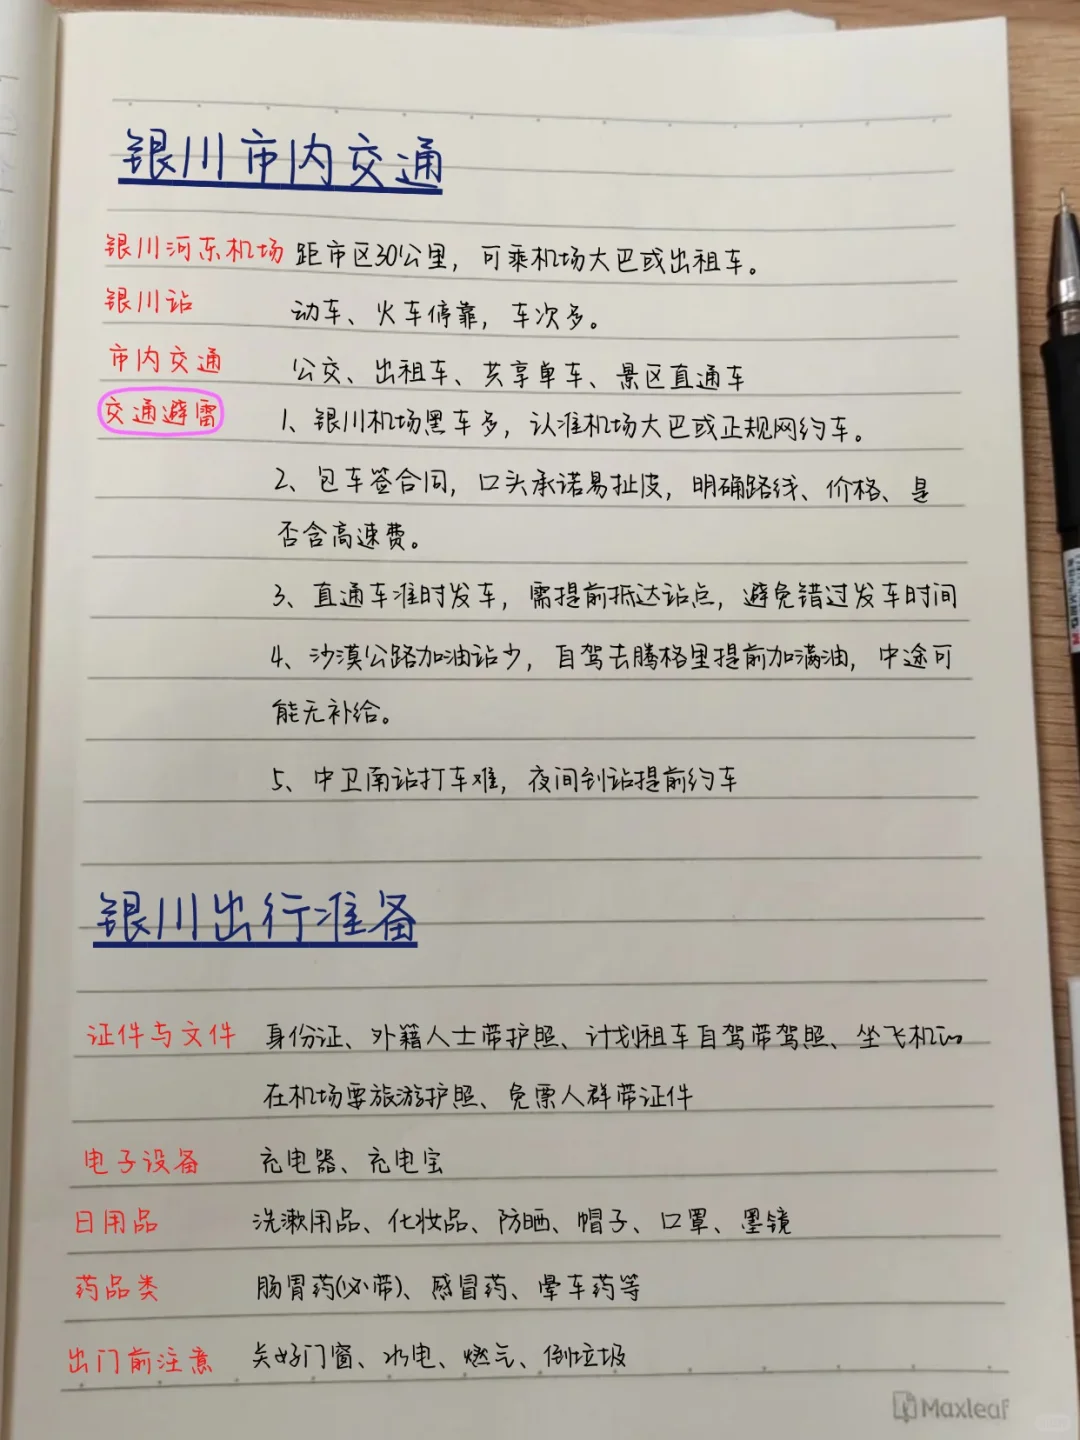 银川市内交通
银川河东机场 距市区30公里，可乘机场大巴或出租车。
银川站 动车、火车停靠，车次多。
市内交通 公交、出租车、共享单车、景区直通车
交通避雷 1、银川机场黑车多，认准机场大巴或正规网约车。
2、包车签合同，口头承诺易扯皮，明确路线、价格、是
否含高速费。
3、直通车准时发车，需提前抵达站点，避免错过发车时间
4、沙漠公路加油站少，自驾去腾格里提前加满油，中途可
能无补给。
5、中卫南站打车难，夜间到站提前约车
银川出行准备
证件与文件 身份证、外籍人士带护照、计划租车自驾带驾照、坐飞机
在机场要旅游护照、免票人群带证件
电子设备 充电器、充电宝
日用品 洗漱用品、化妆品、防晒、帽子、口罩、墨镜
药品类 肠胃药(必带)、感冒药、晕车药等
出门前注意 关好门窗、水电、燃气、倒垃圾
Maxleaf